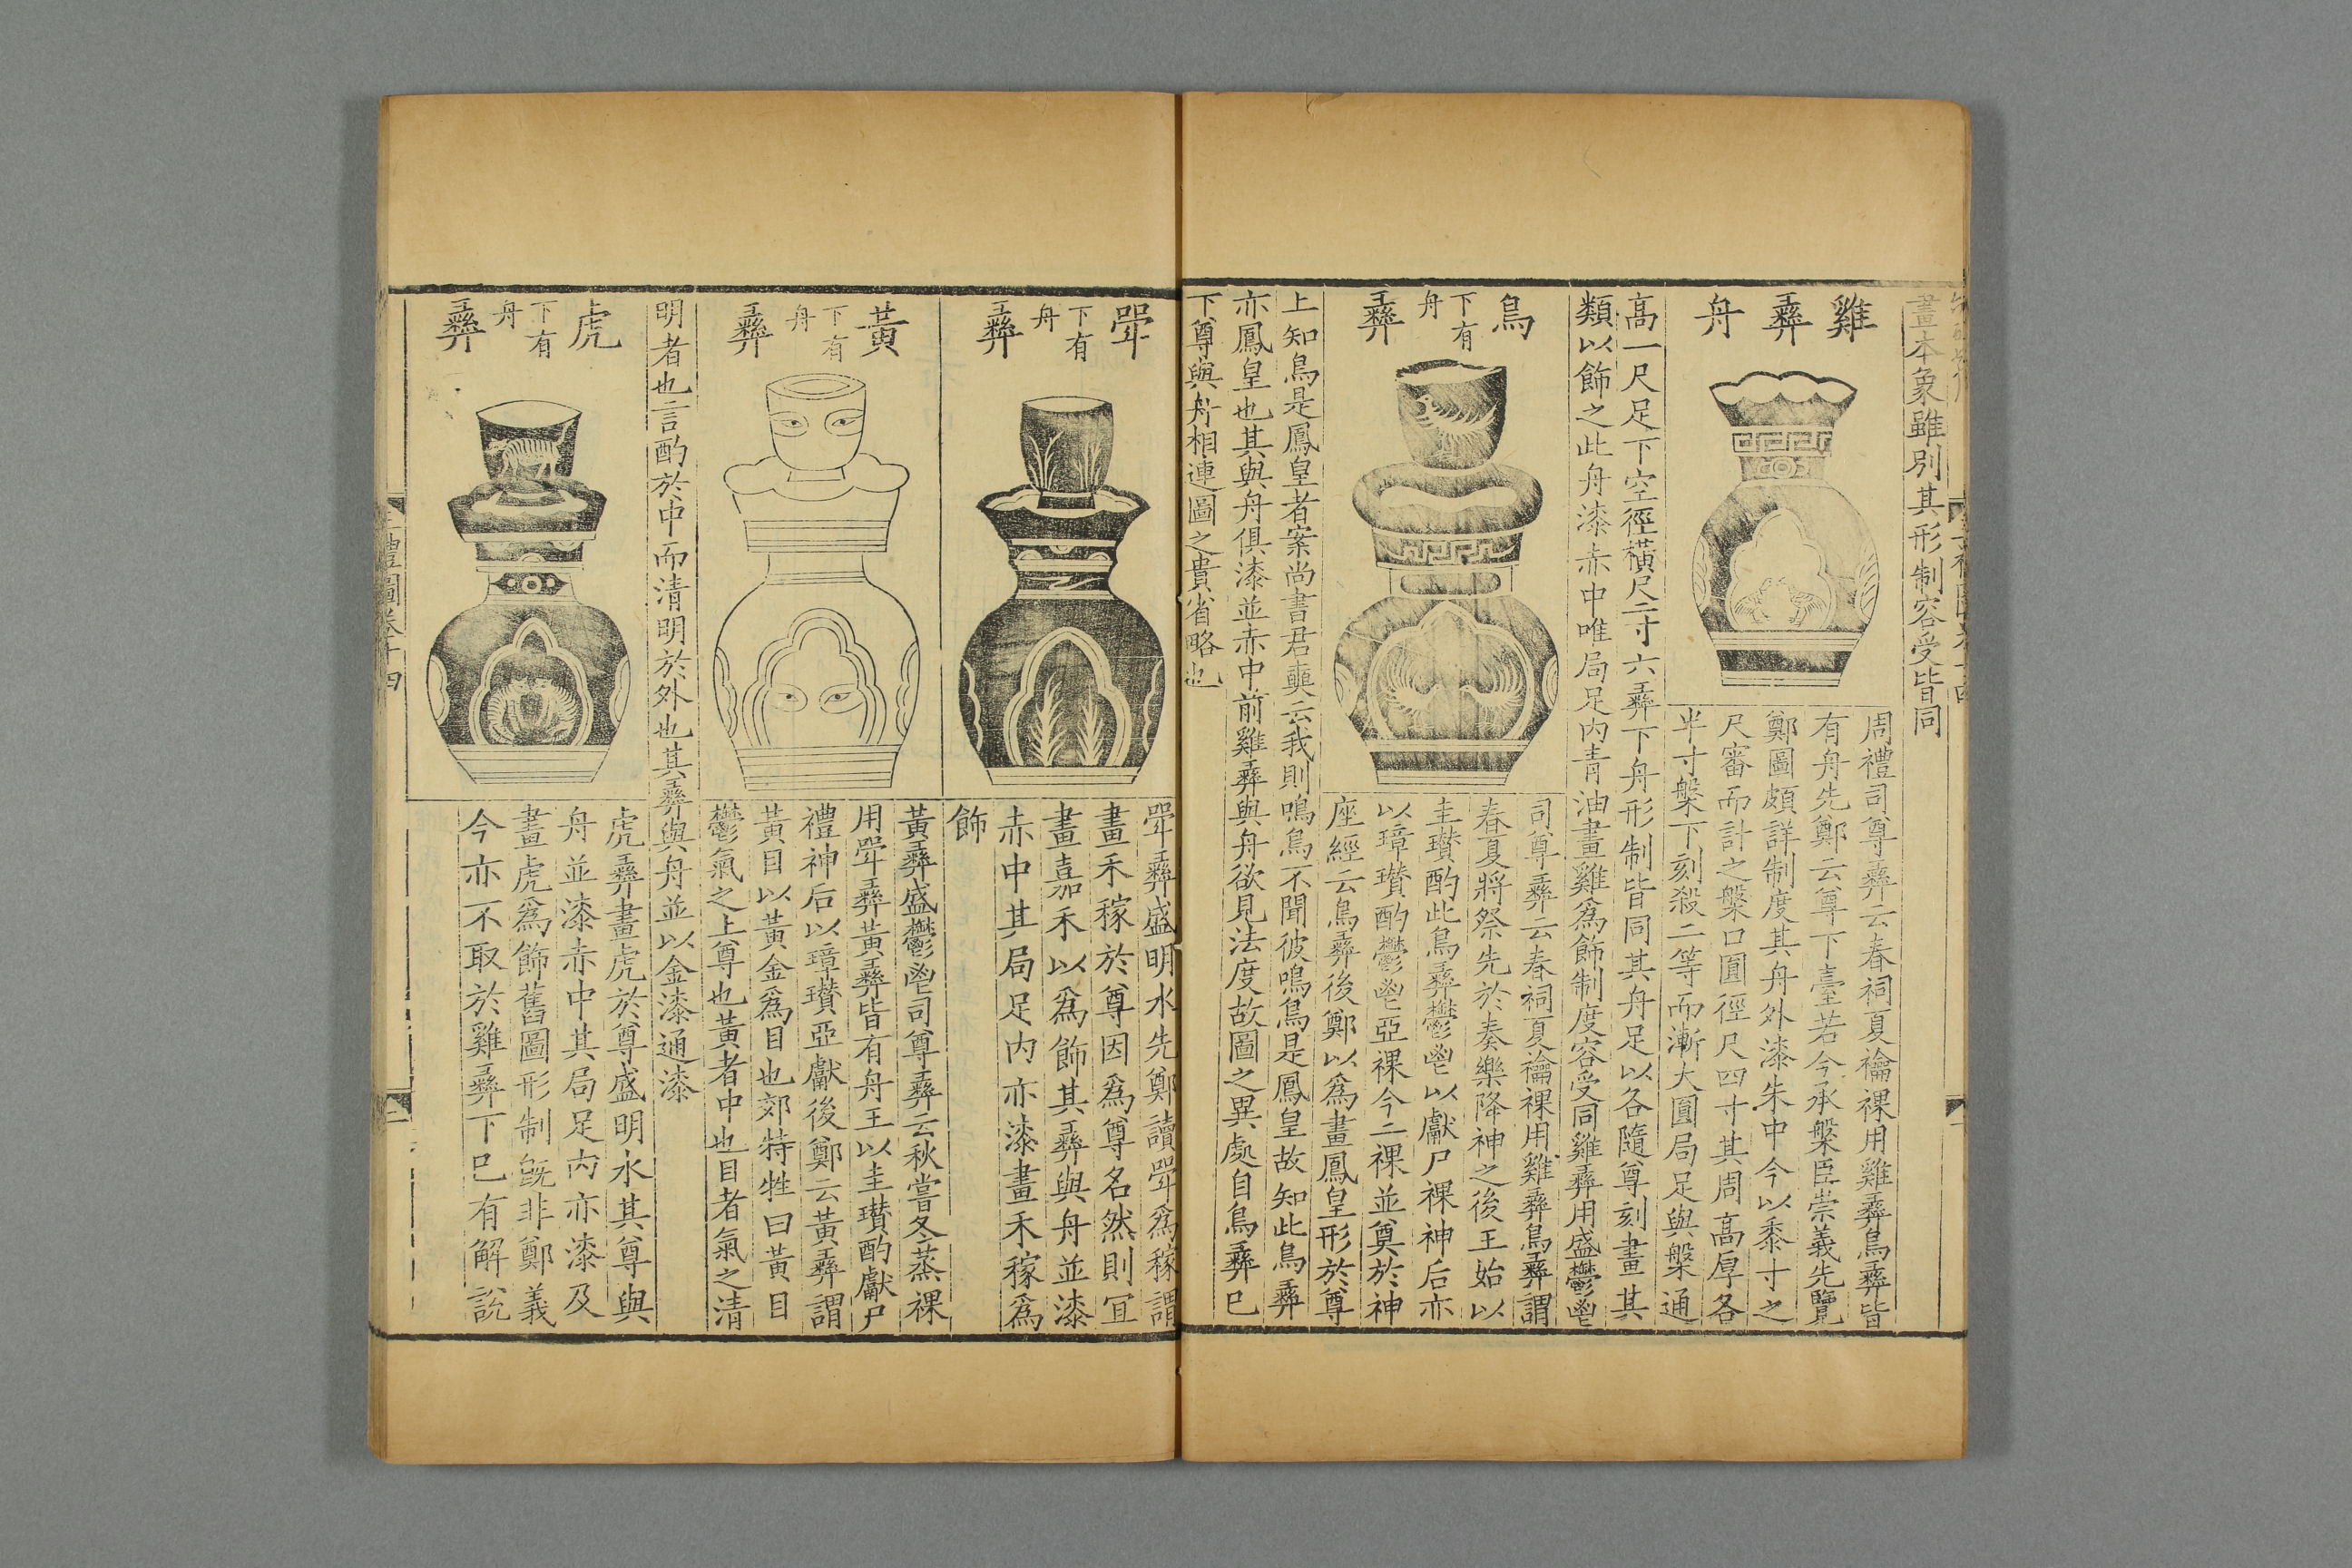 畫本象雖別其形制容受皆同
雞彝舟
周禮司尊彝云春祠夏禴祼用雞彝鳥彝皆
有舟先鄭云尊下臺若今承槃臣崇義先覽
鄭圖頗詳制度其舟外漆朱中今以黍寸之
尺審而計之槃口圓徑尺四寸其周高厚各
半寸槃下刻殺二等而漸大圓局足與槃通
高一尺足下空徑橫尺二寸六彝下舟形制皆同其舟足以各隨尊刻畫其
類以飾之此舟漆赤中唯局足內青油畫雞為飾制度容受同雞彝用盛鬱鬯
鳥彝
下有
舟
司尊彝云春祠夏禴祼用雞彝鳥彝謂
春夏將祭先於奏樂降神之後王始以
圭瓚酌此鳥彝鬱鬯以獻尸祼神后亦
以璋瓚酌鬱鬯亞祼今二祼並奠於神
座經云鳥彝後鄭以為畫鳳皇形於尊
上知鳥是鳳皇者案尚書君奭云我則鳴鳥不聞彼鳴鳥是鳳皇故知此鳥彝
亦鳳皇也其與舟俱漆並赤中前雞彝與舟欲見法度故圖之異處自鳥彝已
下尊與舟相連圖之貴省略也
斝彝
下有
舟
斝彝盛明水先鄭讀斝為稼謂
畫禾稼於尊因為尊名然則宜
畫嘉禾以為飾其彝與舟並漆
赤中其局足內亦漆畫禾稼為
飾
黃彝
下有
舟
黃彝盛鬱鬯司尊彝云秋嘗冬蒸祼
用斝彝黃彝皆有舟王以圭瓚酌獻尸
禮神后以璋瓚亞獻後鄭云黃彝謂
黃目以黃金為目也郊特牲曰黃目
鬱氣之上尊也黃者中也目者氣之清
明者也言酌於中而清明於外也其彝與舟並以金漆通漆
虎彝
下有
舟
虎彝畫虎於尊盛明水其尊與
舟並漆赤中其局足內亦漆及
畫虎為飾舊圖形制旣非鄭義
今亦不取於雞彝下已有解說
三禮圖卷十四
二